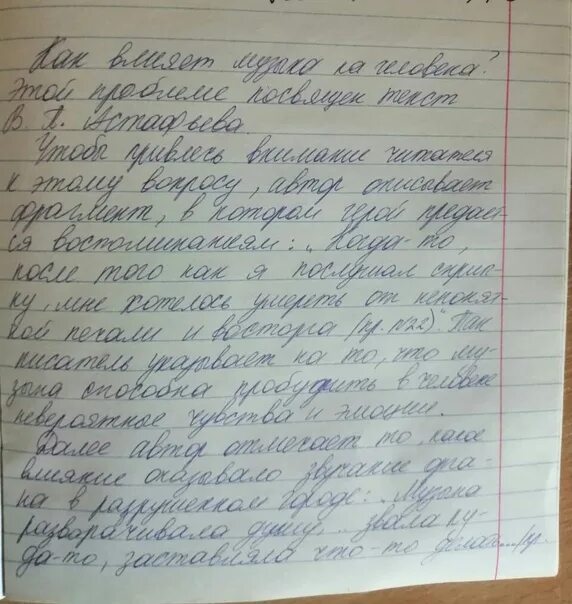 Как влияет музыка на человека?
Этой проблеме посвящен текст
В. П. Астафьева.
Чтобы привлечь внимание читателя
к этому вопросу, автор описывает
фрагмент, в котором герой предает-
ся воспоминаниям: „Когда-то,
после того как я послушал скрип-
ку, мне хотелось умереть от непонят-
ной печали и восторга (пр. №22)". Так
писатель указывает на то, что му-
зыка способна пробудить в человеке
невероятные чувства и эмоции.
Далее автор отмечает то, какое
влияние оказывало звучание орга-
на в разрушенном городе: „Музыка
разворачивала душу, ... звала ку-
да-то, заставляла что-то делать... (пр.